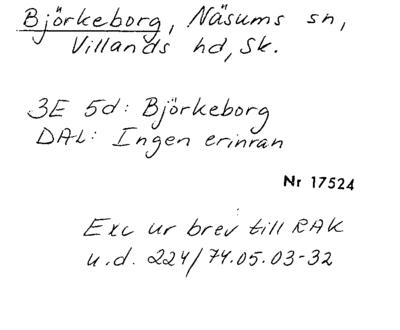 Björkeborg, Näsums sn,
Villands hd, Sk.
3E 5d: Björkeborg
DAL: Ingen erinran
Nr 17524
Exc ur brev till RAK
u.d. 224/74.05.03-32